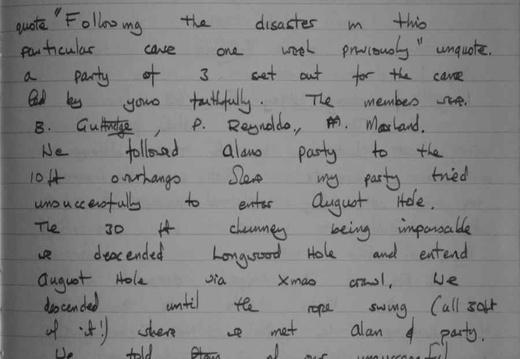 quote "Following the disaster in this
particular cave one week previously" unquote.
a party of 3 set out for the cave
led by yours faithfully. The members were.
B. , P. Reynolds, M. Marland.
We followed Alans party to the
10 ft overhangs Here my party tried
unsuccessfully to enter August Hole.
The 30 ft chimney being impassable
we descended Longwood Hole and enterd
August Hole via Xmas crawl. We
descended until the rope swing (all 30ft
of it!) where we met Alan & party.
We told of our